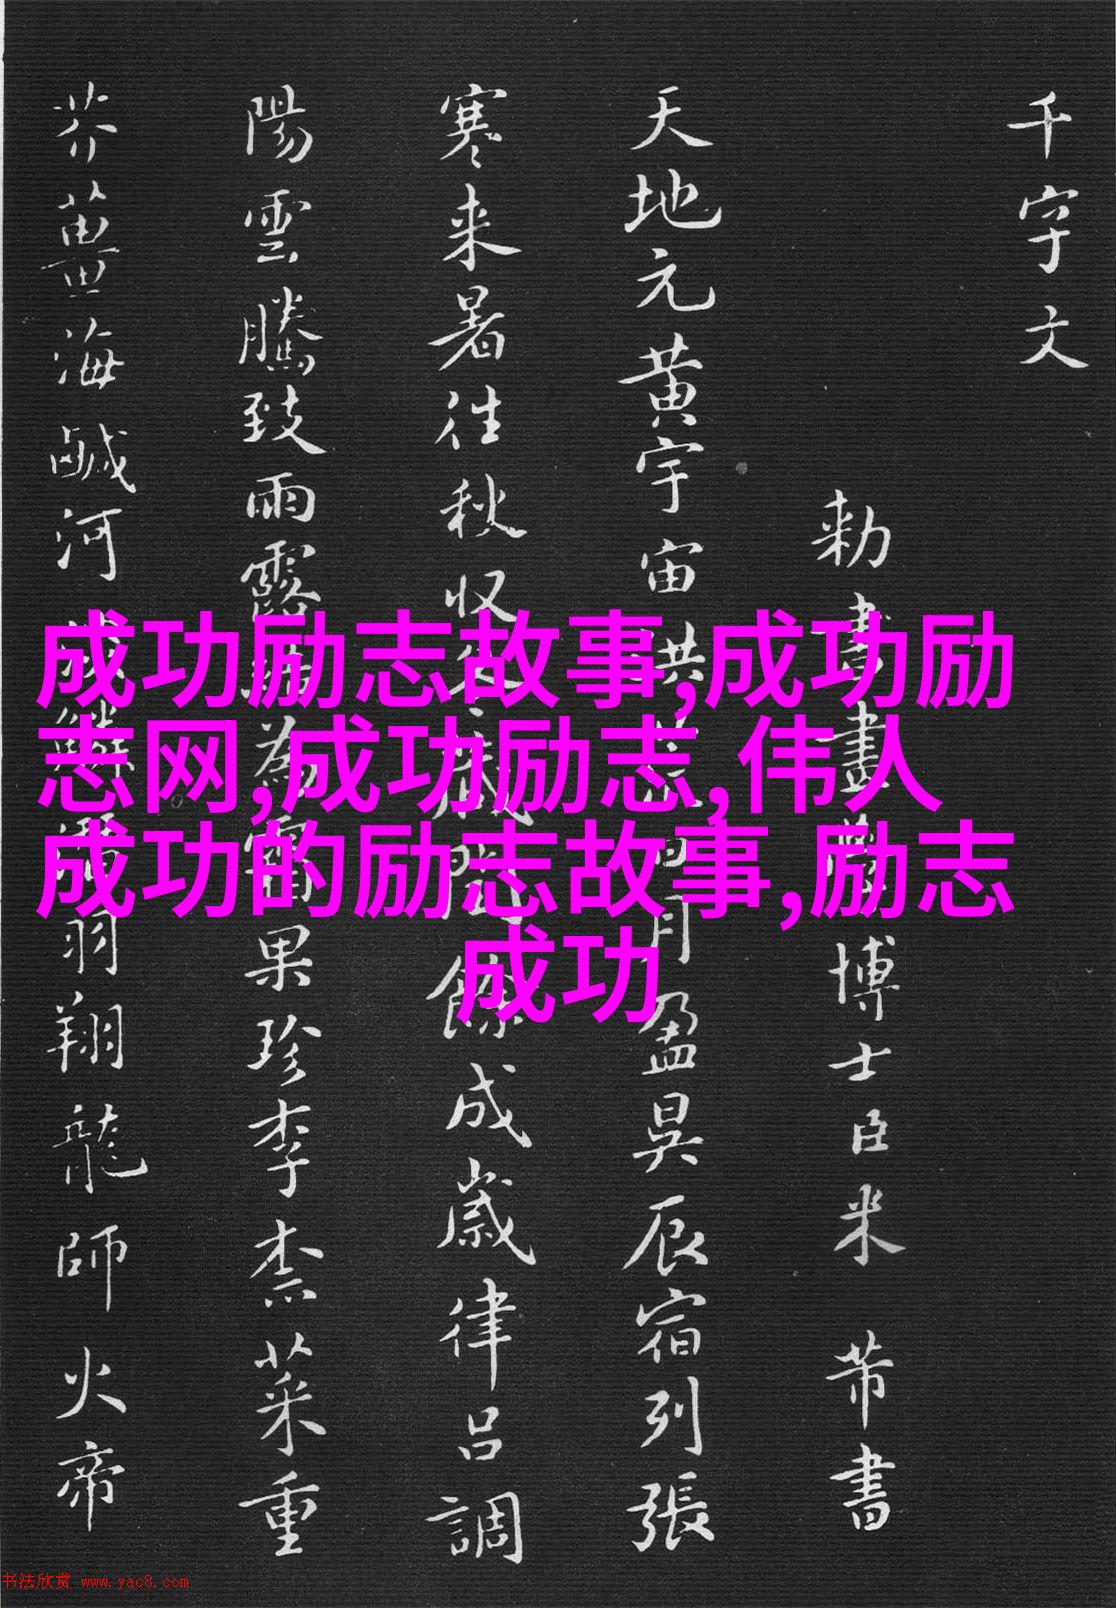 千字文
勅書畫學博士臣米芾書
天地元黄宇宙洪荒日月盈昃辰宿列張
寒来暑往秋収冬蔵閏餘成歲律吕調
陽雲騰致雨露結為霜果珍李柰菜重
芥薑海鹹河淡鱗潛羽翔龍師火帝
成功励志故事,成功励
志网,成功励志,伟人
成功的励志故事,励志
成功
书法欣赏 www.yac8.com